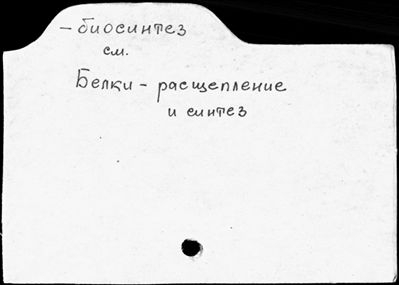 – биосинтез
см.
Белки – расщепление
и синтез